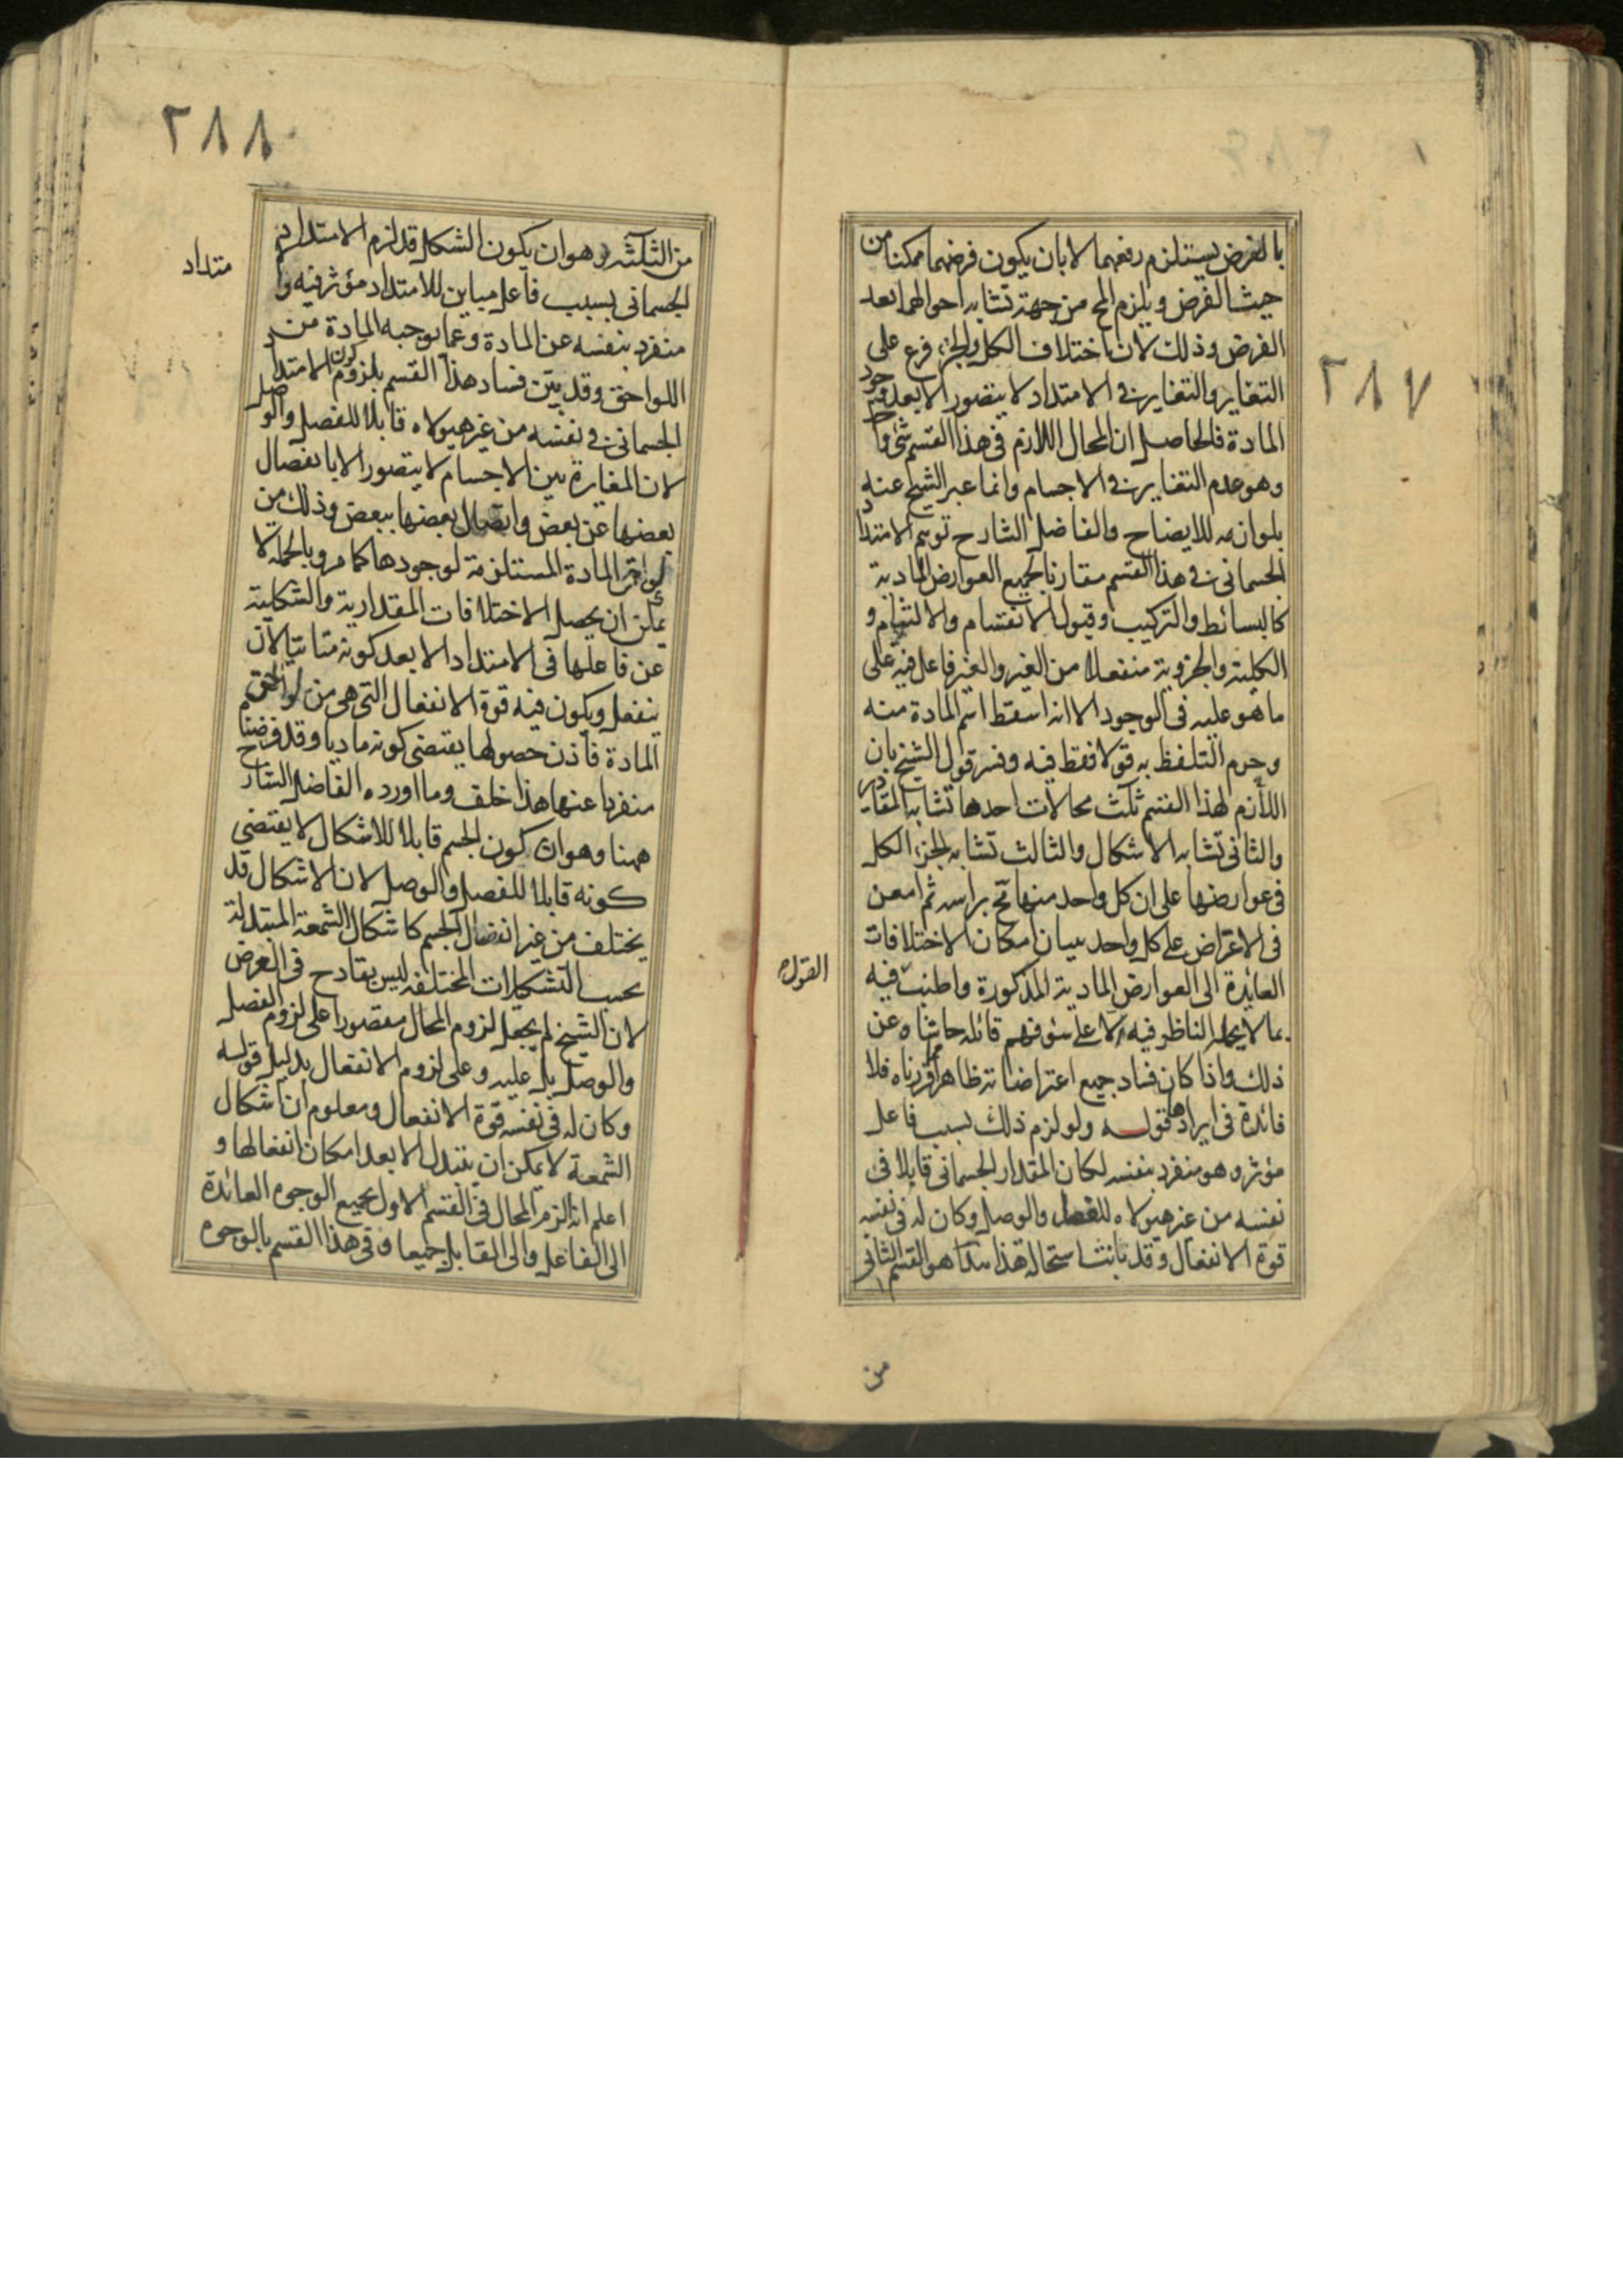 ٢٨٧
بالفرض يستلزم رفعهما لا بان يكون فرضهما ممكنا من
حيث الفرض ويلزم المح من جهة تشابه احوالهما بعد
الفرض وذلك لان اختلاف الكل والجزء فرع على
التغاير والتغاير في الامتداد لا يتصور الا بعد وجود
المادة فالحاصل ان المحال اللازم في هذا القسم شئ واحد
وهو عدم التغاير في الاجسام وانما عبر الشيخ عنه
بلوازمه للايضاح والفاضل الشارح توهم الامتداد
الجسماني في هذا القسم مقارنا لجميع العوارض المادية
كالبسائط والتركيب وقبول الانقسام والالتيام و
الكلية والجزوية منفعلا من الغير والغير فاعل فيه على
ما هو عليه في الوجود الا انه اسقط اسم المادة منه
وحرم التلفظ به قولا فقط فيه وفسر قول الشيخ بان
اللازم لهذا القسم ثلث محالات احدها تشابه المقادير
والثاني تشابه الاشكال والثالث تشابه الجزء الكل
في عوارضها على ان كل واحد منها مح براسه ثم امعن
في الاعتراض على كل واحد ببيان امكان الاختلافات
العائدة الى العوارض المادية المذكورة واطنب فيه
بما لا يحمله الناظر فيه الا على سوء فهم قائله حاشاه عن
ذلك واذا كان فساد جميع اعتراضاته ظاهرا مما قررناه فلا
فائدة في ايرادها قوله ولو لزم ذلك بسبب فاعل
مؤثر وهو منفرد بنفسه لكان المقدار الجسماني قابلا في
نفسه من غير هيولاه للفصل والوصل وكان له في نفسه
قوة الانفعال وقد بانت استحالة هذا هذا هو القسم الثاني
من
القوله
٢٨٨
من الثلثة وهو ان يكون الشكل قد لزم الامتداد
الجسماني بسبب فاعل مباين للامتداد مؤثر فيه وا
متداد
منفرد بنفسه عن المادة وعما توجبه المادة من
اللواحق وقد بين فساد هذا القسم بلزوم كون الامتداد
الجسماني في نفسه من غير هيولاه قابلا للفصل والوصل
لان المغايرة بين الاجسام لا يتصور الا بانفصال
بعضها عن بعض واتصال بعضها ببعض وذلك من
لواحق المادة المستلزمة لوجودها كما مر وبالجملة لا
يمكن ان يحصل الاختلافات المقدارية والشكلية
عن فاعلها في الامتداد الا بعد كونه متاتيا لان
ينفعل ويكون فيه قوة الانفعال التي هي من لواحق
المادة فاذن حصولها يقتضي كونه ماديا وقد فرضنا
منفردا عنها هذا خلف وما اورده الفاضل الشارح
ههنا وهو ان كون الجسم قابلا للاشكال لا يقتضي
كونه قابلا للفصل والوصل لان الاشكال قد
يختلف من غير انفصال الجسم كاشكال الشمعة المتبدلة
بحسب التشكلات المختلفة ليس بقادح في الغرض
لان الشيخ لم يجعل لزوم المحال مقصورا على لزوم الفصل
والوصل بل عليه وعلى لزوم الانفعال بدليل قوله
وكان له في نفسه قوة الانفعال ومعلوم ان اشكال
الشمعة لا يمكن ان يتبدل الا بعد امكان انفعالها و
اعلم انه الزم المحال في القسم الاول بجميع الوجوه العائدة
الى الفاعل والى القابل جميعا وفي هذا القسم بالوجوه